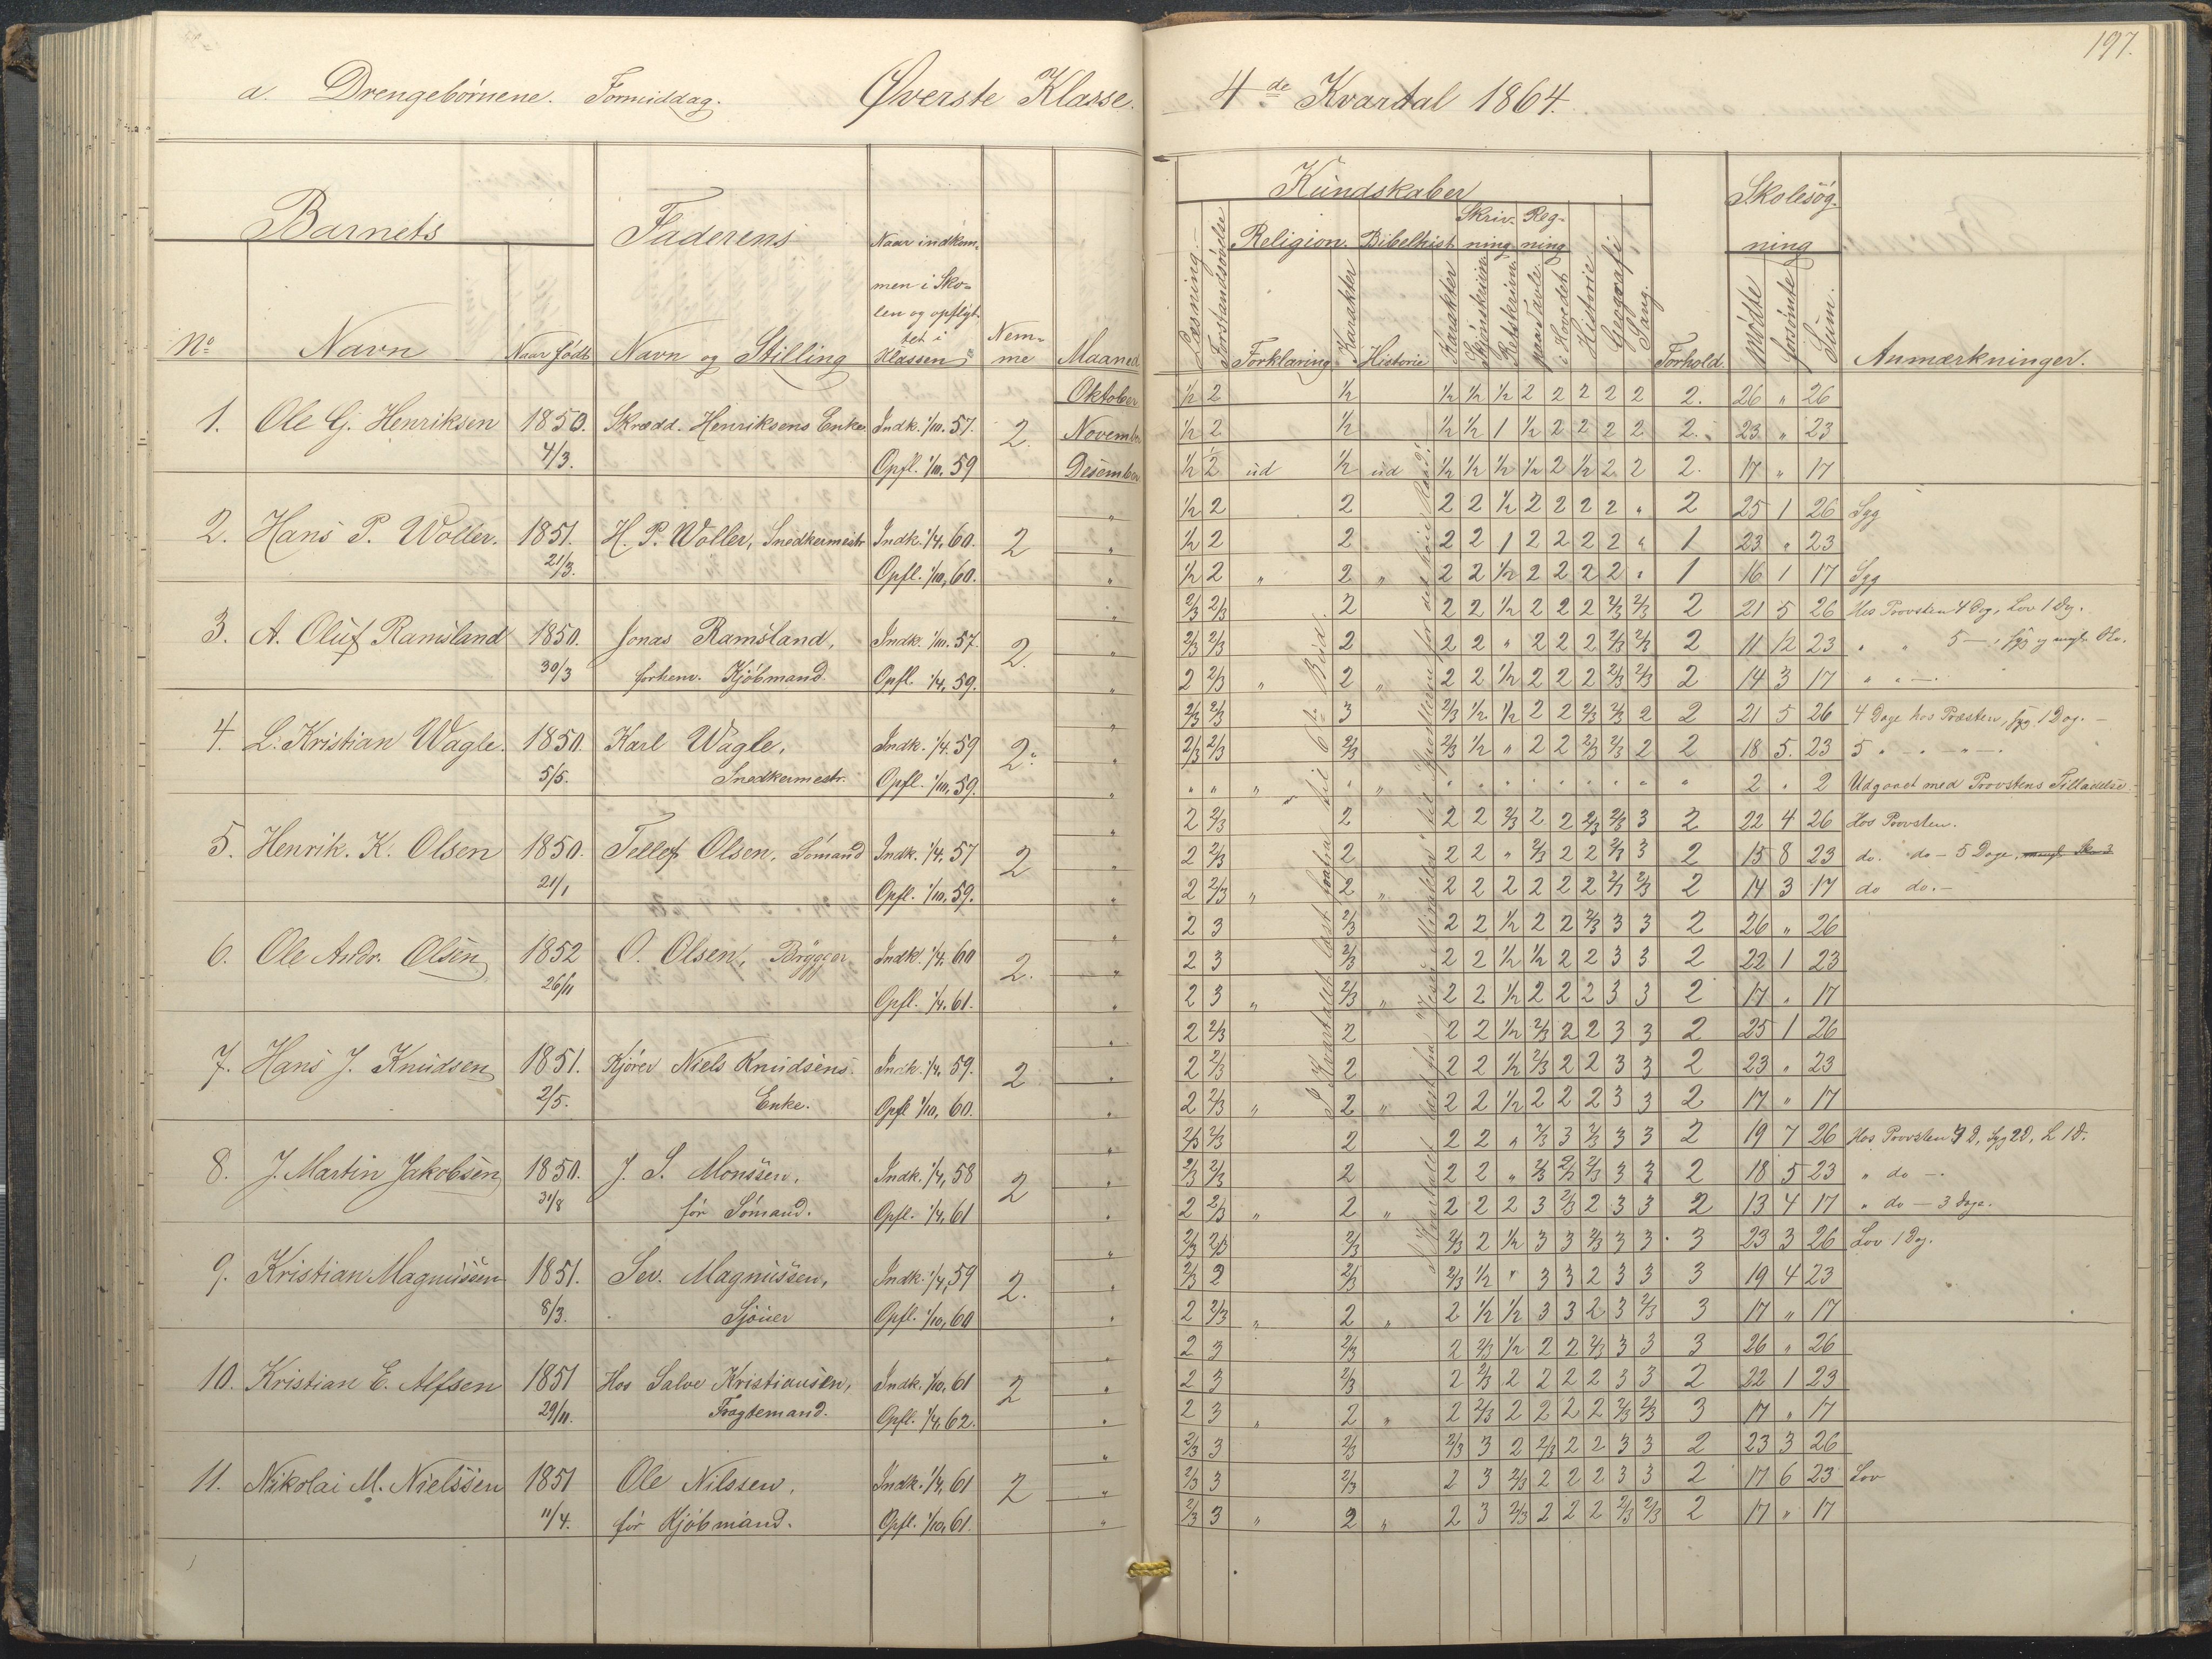 197.
a. Drengebörnene. Formiddag. Øverste Klasse. 4de Kvartal 1864.
Barnets Faderens Naar indkommen i Skolen og opflyttet i Klassen Nemme Maaned
No Navn Naar født Navn og Stilling
Kundskaber Skolesøgning
Læsning Forstandsøvelse Religion. Bibelhist. Skrivning Regning Historie Geografi Sang. Forhold. Mødte Forsømte Sum. Anmærkninger.
Forklaring Karakter Historie Karakter Skjønskrivn. Retskrivn. paa Tavle i Hovedet
Oktober ½ 2 ½ ½ ½ ½ 2 2 2 2 2 2. 26 " 26
1. Ole G. Henriksen 1850. Skrædd. Henriksens Enke. Indk. 1/10. 57. 2. November ½ 2 ½ ½ ½ 1 ½ 2 2 2 2 2. 23 " 23
4/3. Opfl. 1/10. 59 Desember ½ 2 ud ½ ud ½ ½ ½ ½ 2 ½ 2 2 2. 17 " 17
" ½ 2 2 2 2 ½ 2 2 2 2 " 2 25 1 26 Syg
2. Hans P. Woller. 1851. H. P. Woller, Snedkermestr Indk. 1/4, 60. 2 " ½ 2 2 2 2 1 2 2 2 2 " 1 23 " 23
21/3. Opfl. 1/10, 60. " ½ 2 " 2 " 2 2 ½ 2 2 2 2 " 1 16 1 17 Syg
" 2/3 2/3 2 2 2 ½ 2 2 2 2/3 2/3 2 21 5 26 Hos Provsten 4 Dg, Lov 1 Dg.
3. A. Oluf Ramsland 1850. Jonas Ramsland, Indk. 1/10. 57. 2. " 2/3 2/3 2 2 2 " 2 2 2 2/3 2/3 2 11 12 23 " " 5 —
30/3 forhenv. Kjöbmand. Opfl. 1/4, 59. " 2 2/3 " 2 " 2 2 ½ 2 2 2 2/3 2/3 2 14 3 17 " " —
" 2/3 2/3 3 2/3 ½ ½ 2 2 2/3 2/3 2 2 21 5 26 4 Dage hos Præsten, syg 1 Dag. —
4. L. Kristian Wagle. 1850. Karl Wagle, Indk. 1/4. 59 2. " 2/3 2/3 2/3 2/3 ½ " 2 2 2/3 2/3 2 2 18 5. 23 5 " — " —
5/5. Snedkermestr. Opfl. 1/10, 59. " " " " " " " " " " " " " " " " 2 " 2 Udgaaet med Provstens Tilladelse
" 2 2/3 2 2 2 2/3 2 2 2/3 2/3 3 2 22 4 26 Hos Provsten.
5. Henrik. K. Olsen 1850. Tellef Olsen, Sömand Indk. 1/4, 57 2 " 2 2/3 2 2 2 " 2/3 2 2 2/3 3 2 15 8 23 do. do — 5 Dage,
21/1 Opfl. 1/10, 59. " 2 2/3 " 2 " 2 2 2 2 2 2 2/3 2/3 2 14 3 17 do do. —
" 2 3 2/3 2 2 ½ 2 2 2/3 3 3 2 26 " 26
6. Ole Andr. Olsen 1852 O. Olsen, Brygger Indk. 1/4, 60 2. " 2 3 2/3 2 2 ½ ½ 2 2 3 3 2 22 1 23
26/11 Opfl. 1/4. 61. " 2 3 " 2/3 " 2 2 ½ 2 2 2 3 3 2 17 " 17
" 2 2/3 2 2 2 ½ 2/3 2 2 3 3 2 25 1 26
7. Hans J. Knudsen 1851. Kjörer Niels Knudsens Indk. 1/4, 59. 2 " 2 2/3 2 2 2 ½ 2/3 2 2 3 3 2 23 " 23
2/5. Enke. Opfl 1/10, 60. " 2 2/3 " 2 " 2 2 ½ 2 2 2 3 3 2 17 " 17
" 2/3 2/3 2 2 2 " 2/3 3 2/3 3 3 2 19 7 26 Hos Provsten 4 D, Syg 2 D, L 1 D.
8. J. Martin Jakobsen 1850. J. S. Monssen, Indk. 1/4, 58 2 " 2/3 2/3 2 2 2 " 2/3 2/3 2/3 3 3 2 18 5 23 " do —
31/8 för Sömand. Opfl. 1/4, 61 " 2 2/3 " 2 " 2 2 2 3 2/3 2 3 3 2 13 4 17 " do — 3 Dage.
" 2/3 2/3 2/3 2/3 2 ½ 3 3 2/3 3 3 3 23 3 26 Lov 1 Dg.
9. Kristian Magnussen 1851. Sev. Magnussen, Indk. 1/4, 59 2. " 2/3 2 2/3 2/3 ½ " 3 3 2 3 3 3 19 4 23
8/3. Sjöuer Opfl. 1/10, 60 " 2 2/3 " 2 " 2 ½ ½ 3 3 2 3 2/3 3 17 " 17
" 2 3 2/3 2 2/3 ½ 2 2 2/3 3 3 3 26 " 26
10. Kristian E. Alfsen 1851 Hos Salve Kristiansen, Indk. 1/10, 61 2 " 2 3 2/3 2 2/3 2 2 2 2 3 3 2 22 1 23
29/11. Fragtemand. Opfl. 1/4, 62. " 2 3 " 2 " 2 2/3 2 2 2 2 2/3 2/3 3 17 " 17
" 2/3 3 2/3 2/3 3 2 2/3 2 2 3 3 2 23 3 26
11. Nikolai M. Nielssen 1851 Ole Nilssen, Indk. 1/4, 61 2 " 2/3 3 2/3 2 3 2/3 2 2 2 3 3 2 17 6 23 Lov
11/4. för Kjöbmand. Opfl. 1/10, 61. " 2/3 3 " 2 " 2 3 2/3 2 2 2 2/3 2/3 2 17 " 17
I Kvartalet læst forfra til 6te Bud.